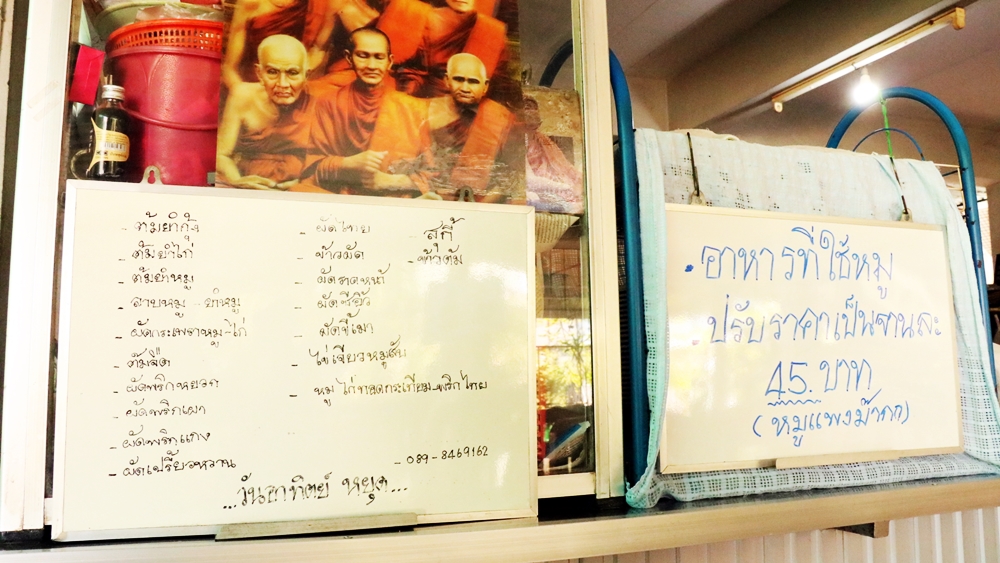 - ต้มยำกุ้ง
- ต้มยำไก่
- ต้มยำหมู
- ลาบหมู - ยำหมู
- ผัดกระเพราหมู-ไก่
- ต้มจืด
- ผัดพริกหยวก
- ผัดพริกเผา
- ผัดพริกแกง
- ผัดเปรี้ยวหวาน
- ผัดไทย
- ข้าวผัด
- ผัดราดหน้า
- ผัดซีอิ้ว
- ผัดขี้เมา
- ไข่เจียวหมูสับ
- หมู ไก่ทอดกระเทียม-พริกไทย
สุกี้
ข้าวต้ม
- 089-8469162
...วันอาทิตย์ หยุด...
• อาหารที่ใช้หมู
ปรับราคาเป็นจานละ
45 บาท
(หมูแพงม๊ากก)